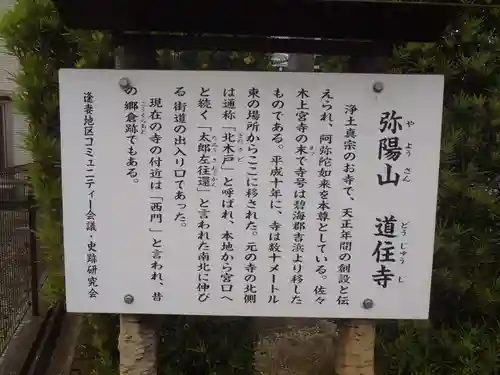 弥陽山 道住寺
やようさん どうじゅうし
浄土真宗のお寺で、天正年間の創設と伝
えられ、阿弥陀如来を本尊としている。佐々
木上宮寺の末で寺号は碧海郡吉浜より移した
ものである。平成十年に、寺は数十メートル
東の場所からここに移された。元の寺の北側
は通称「北木戸」と呼ばれ、本地から宮口へ
と続く「太郎左往還」と言われた南北に伸び
る街道の出入り口であった。
現在の寺の付近は「西門」と言われ、昔
の郷倉跡でもある。
逢妻地区コミュニティー会議・史跡研究会